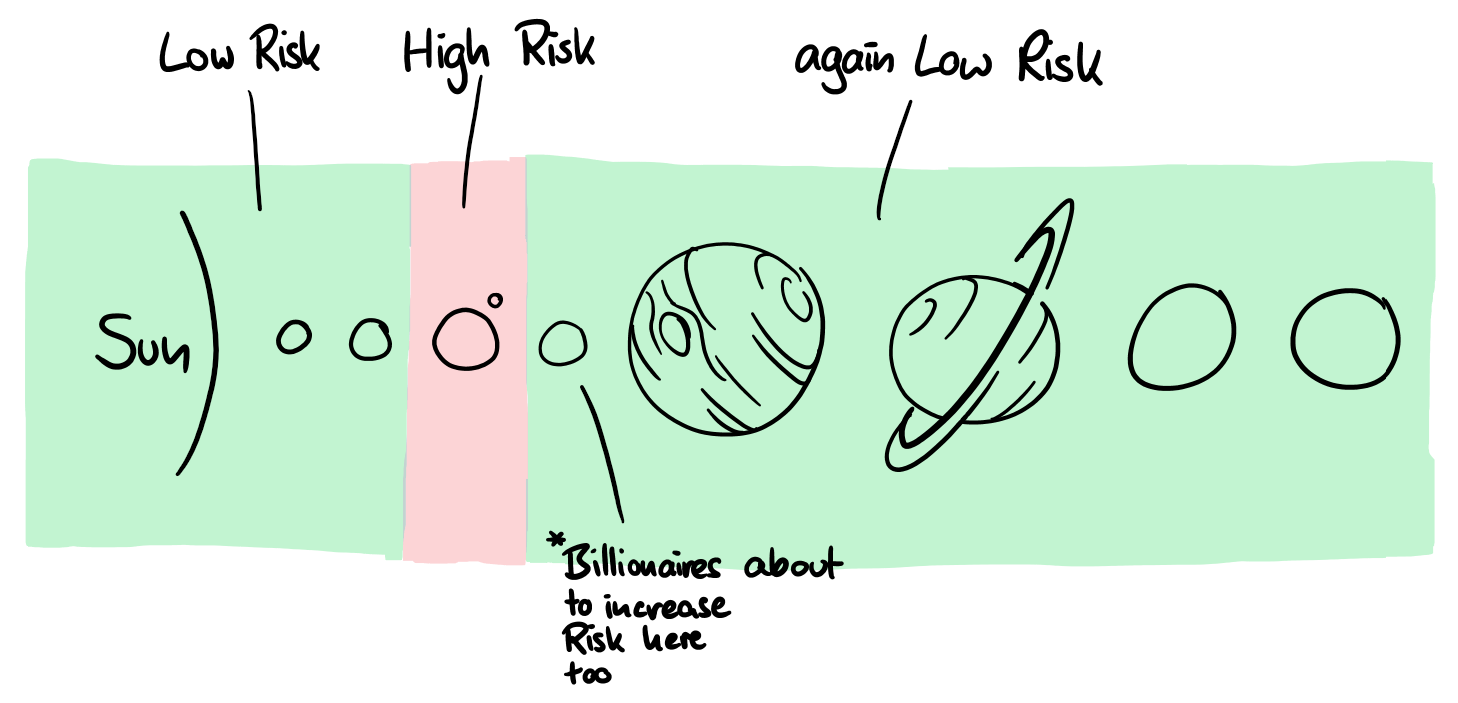 Low Risk
High Risk
again Low Risk
Sun
*Billionaires about
to increase
Risk here
too